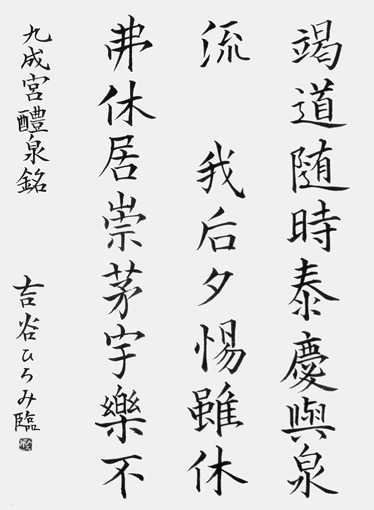 竭道随時泰慶與泉
流 我后夕惕雖休
弗休居崇茅宇樂不
九成宮醴泉銘
吉谷ひろみ臨